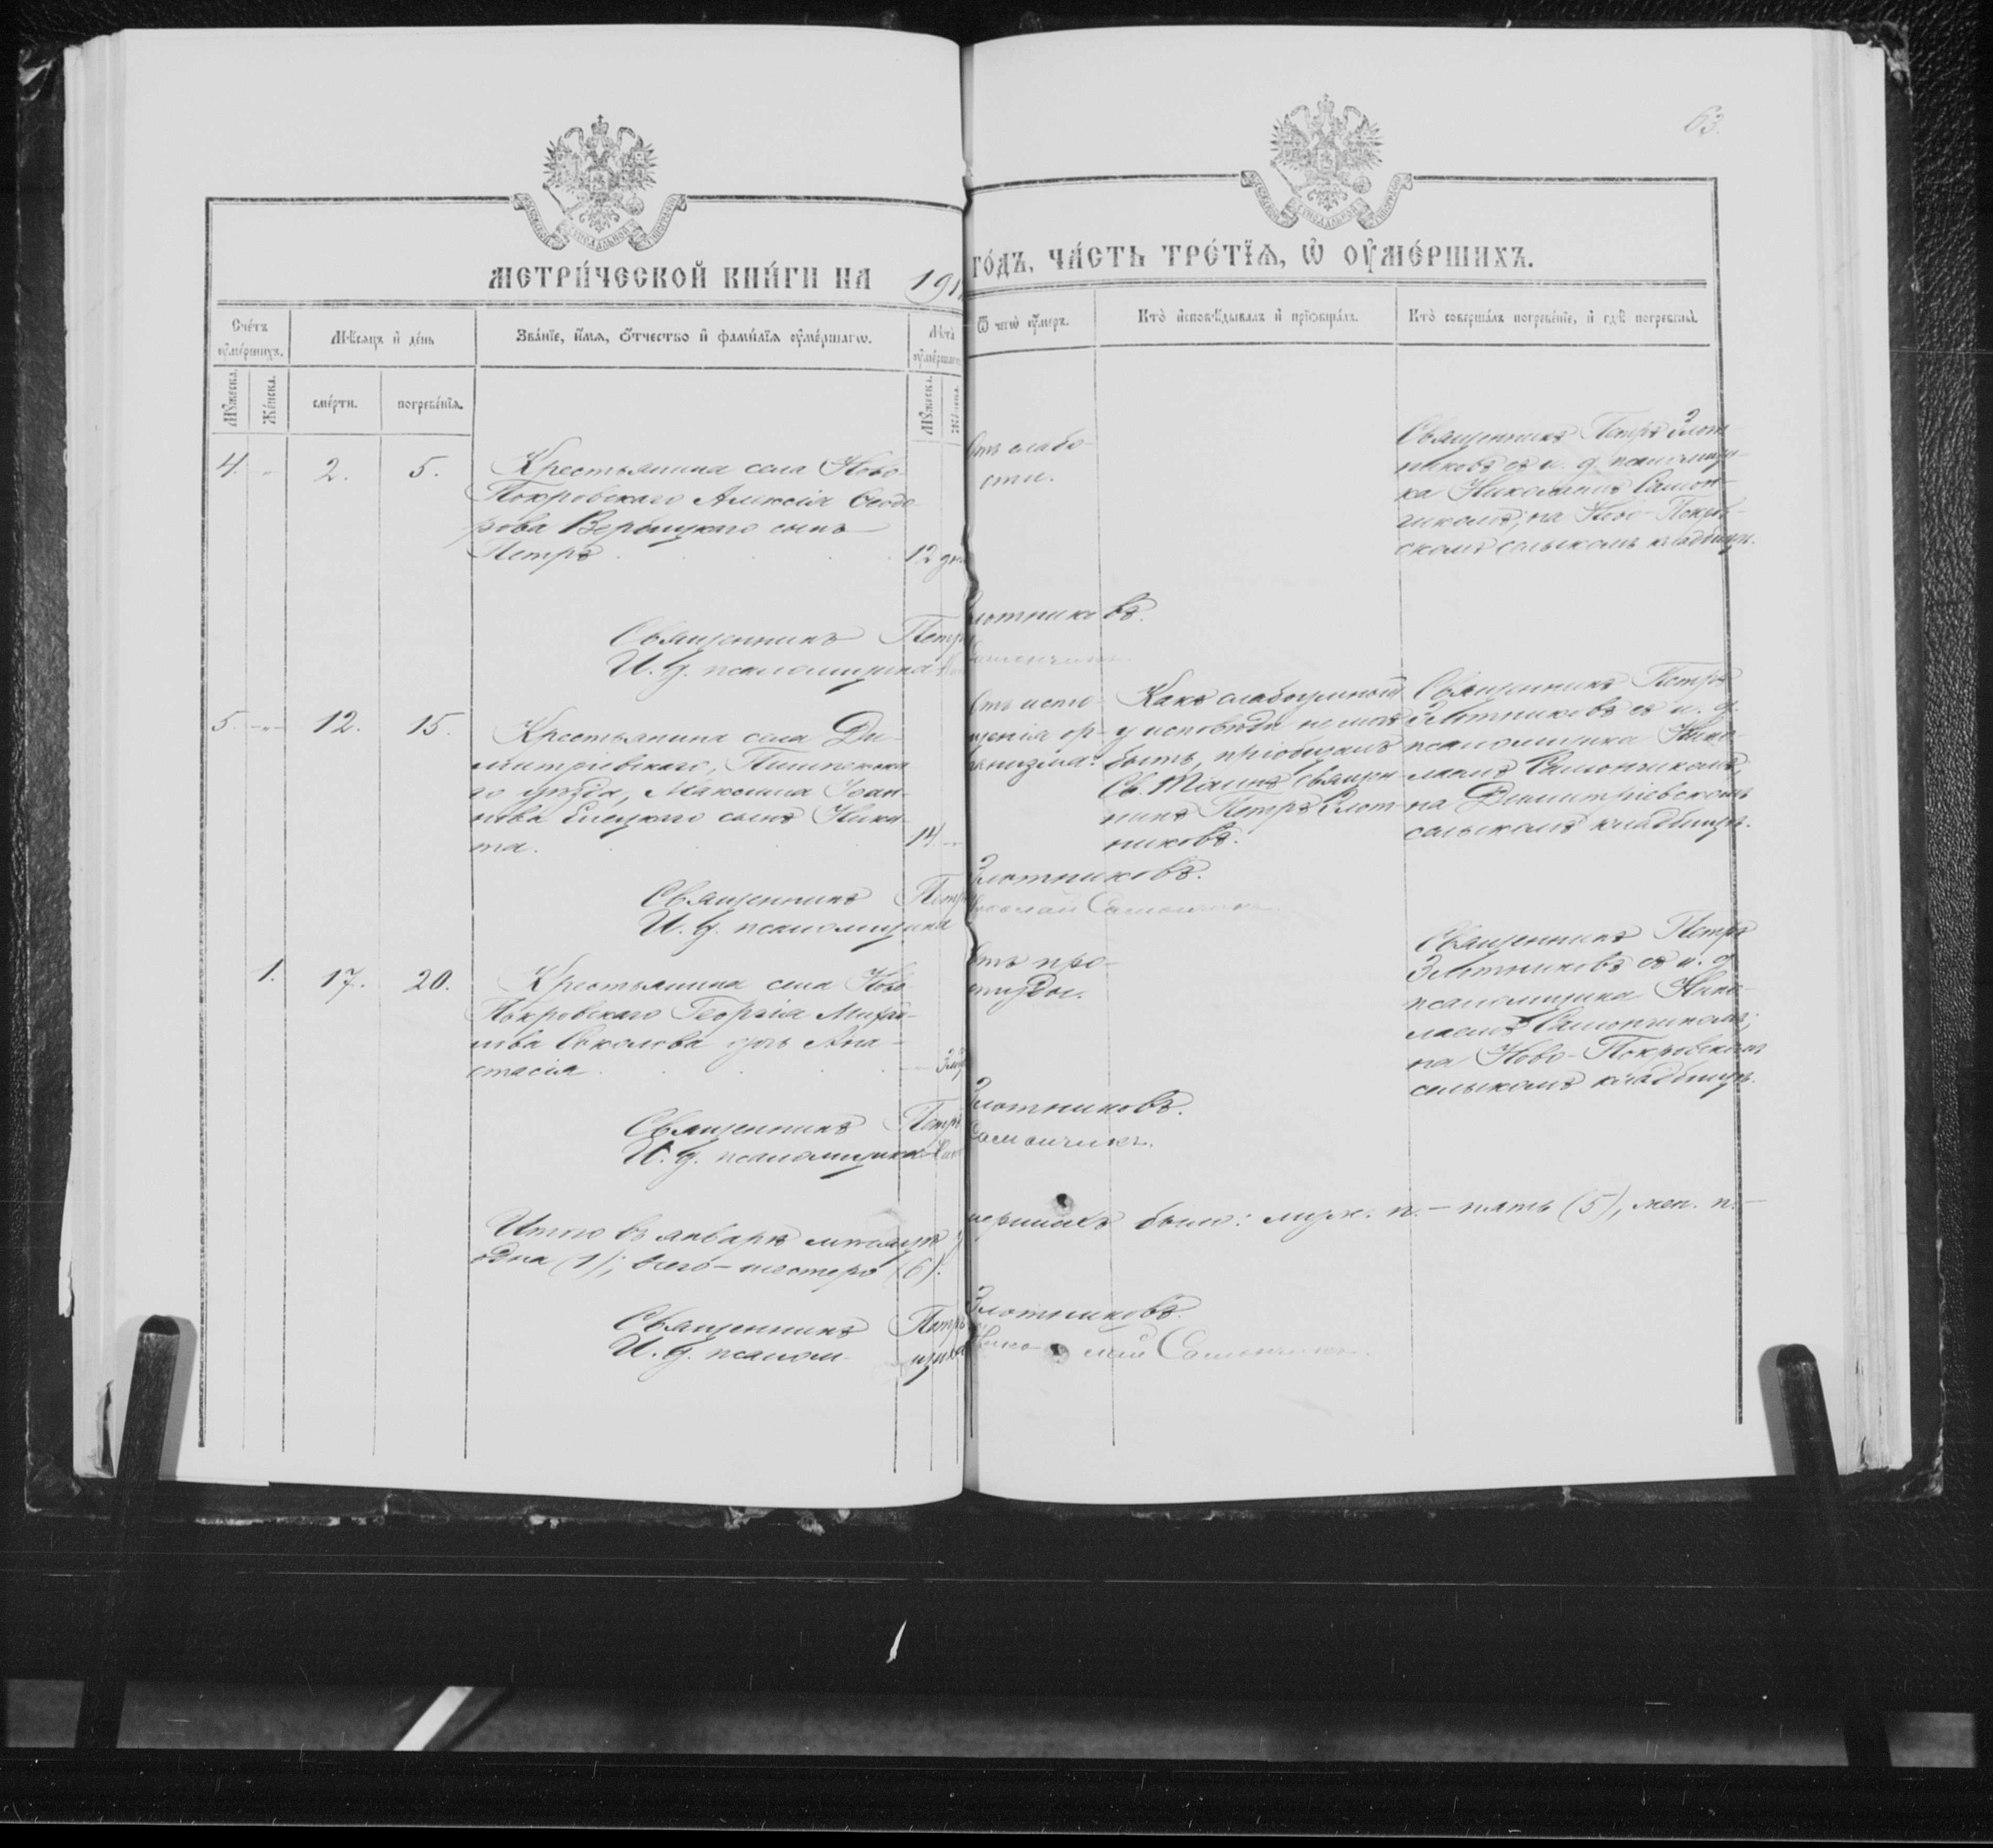 63.
МЕТРИ́ЧЕСКОЙ КНИ́ГИ НА 191
ГО́ДЪ, ЧА́СТЬ ТРЕ́ТЇѦ, Ѡ҆ ОУ҆МЕ́РШИХЪ.
Сче́тъ оу҆ме́ршихъ.
Мѣ́сяцъ и҆ де́нь
Зва́нїе, и҆́мѧ, ѻ҆́тчество и҆ фами́лїѧ оу҆ме́ршагѡ.
Лѣ́та оу҆ме́ршагѡ
Ѿ чегѡ̀ оу҆́меръ.
Кто̀ и҆сповѣ́дывалъ и҆ прїѡбща́лъ.
Кто̀ соверша́лъ погребе́нїе, и҆ гдѣ̀ погребены̀.
Мꙋ́жеска.
Же́нска.
сме́рти.
погребе́нїѧ.
Мꙋ́жеска.
Же́нска.
4.
2.
5.
Крестьянина села Ново-
Покровскаго Алексія Ѳеодо-
рова Вербицкаго сынъ
Петръ
12 дн
Отъ слабо-
сти.
Священникъ Петръ Злот-
никовъ съ и. д. псаломщи-
ка Николаемъ Самон-
чикомъ; на Ново-Покров-
скомъ сельскомъ кладбищѣ.
Священникъ Петръ Злотниковъ.
И. д. псаломщика
5.
12.
15.
Крестьянина села Ди-
митріевскаго, Пишпекска-
го уѣзда, Максима Іоан-
нова Елецкаго сынъ Ники-
та.
14.
Отъ исто-
щенія ор-
ганизма.
Какъ слабоумный
у исповѣди не могъ
быть, пріобщалъ
Св. Таинъ священ-
никъ Петръ Злот-
никовъ.
Священникъ Петръ
Злотниковъ съ и. д.
псаломщика Нико-
лаемъ Самончикомъ;
на Димитріевскомъ
сельскомъ кладбищѣ.
Священникъ Петръ Злотниковъ.
И. д. псаломщика Николай Самончикъ
1.
17.
20.
Крестьянина села Ново-
Покровскаго Георгія Михаи-
лова Соколова дочь Ана-
стасія
Отъ про-
студы.
Священникъ Петръ
Злотниковъ съ и. д.
псаломщика Нико-
лаемъ Самончикомъ;
на Ново-Покровскомъ
сельскомъ кладбищѣ.
Священникъ Петръ Злотниковъ.
И. д. псаломщика Самончикъ.
Итого въ январѣ мѣсяцѣ умершихъ было: муж. п. – пять (5), жен. п. –
одна (1); всего – шестеро (6).
Священникъ Петръ Злотниковъ.
И. д. псаломщика Николай Самончикъ.